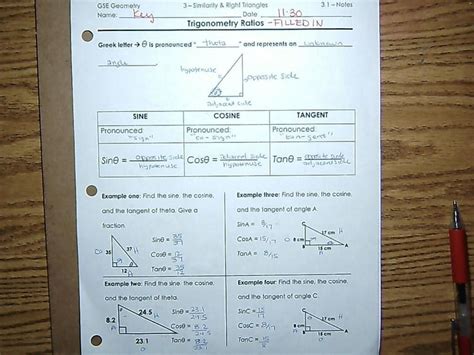 GSE Geometry 3 – Similarity & Right Triangles 3.1 – Notes
Name: Key Date 11.30
Trigonometry Ratios - FILLED IN
Greek letter → θ is pronounced "theta" and represents an unknown
angle
hypotenuse
opposite side
θ
adjacent side
SINE COSINE TANGENT
Pronounced: Pronounced: Pronounced:
"sign" "co-sign" "tan-gent"
Sinθ = opposite side
hypotenuse
Cosθ = adjacent side
hypotenuse
Tanθ = opposite side
adjacent side
Example one: Find the sine, the cosine,
and the tangent of theta. Give a
fraction.
35 37 H
12
Sinθ = 35/37
Cosθ = 12/37
Tanθ = 35/12
Example three: Find the sine, the cosine,
and the tangent of angle A.
SinA = 8/17
CosA = 15/17
TanA = 8/15
8 cm 17 cm H
15 cm A
Example two: Find the sine, the cosine,
and the tangent of theta.
8.2 24.5 H
23.1
Sinθ = 23.1/24.5
Cosθ = 8.2/24.5
Tanθ = 23.1/8.2
Example four: Find the sine, the cosine,
and the tangent of angle C.
SinC = 15/17
CosC = 8/17
TanC = 15/8
8 cm 17 cm H
15 cm A